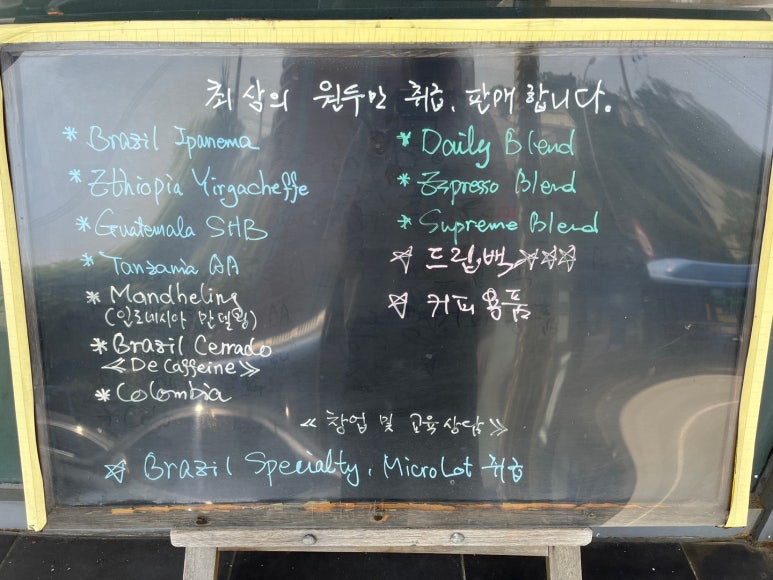 최상의 원두만 취급, 판매합니다.
* Brazil Ipanema
* Ethiopia Yirgacheffe
* Guatemala SHB
* Tanzania AA
* Mandheling
(인도네시아 만델링)
* Brazil Cerrado
≪De Caffeine≫
* Colombia
* Daily Blend
* Espresso Blend
* Supreme Blend
☆ 드립백☆☆☆
☆ 커피용품
≪창업 및 교육상담≫
☆ Brazil Specialty, MicroLot 취급